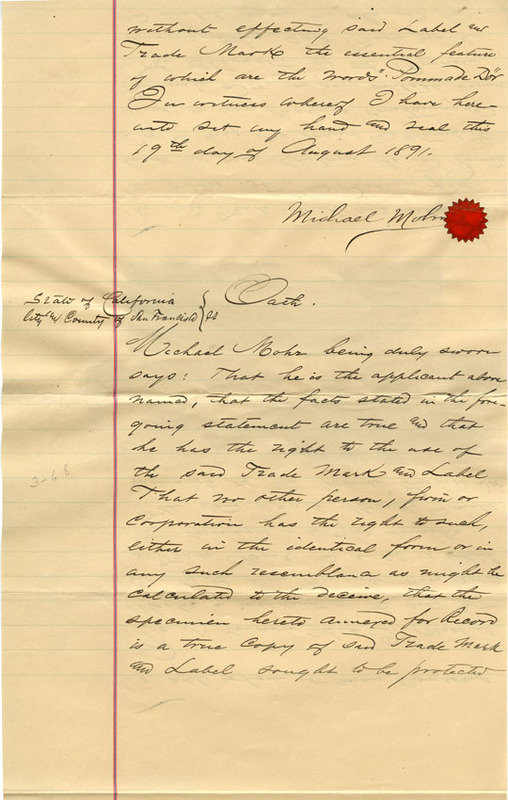 without effecting said Label and
Trade Mark the essential feature
of which are the words "Pommade Dor"
In witness whereof I have here-
unto set my hand and seal this
19th day of August 1891.
Michael Mohr
State of California
City and County of San Francisco } ss
Oath.
Michael Mohr being duly sworn
says: That he is the applicant above
named, that the facts stated in the fore-
going statement are true and that
he has the right to the use of
the said Trade Mark and Label
That no other person, firm or
Corporation has the right to such,
either in the identical form or in
any such resemblance as might be
calculated to the deceive, that the
specimen hereto annexed for Record
is a true copy of said Trade Mark
and Label sought to be protected
3-68